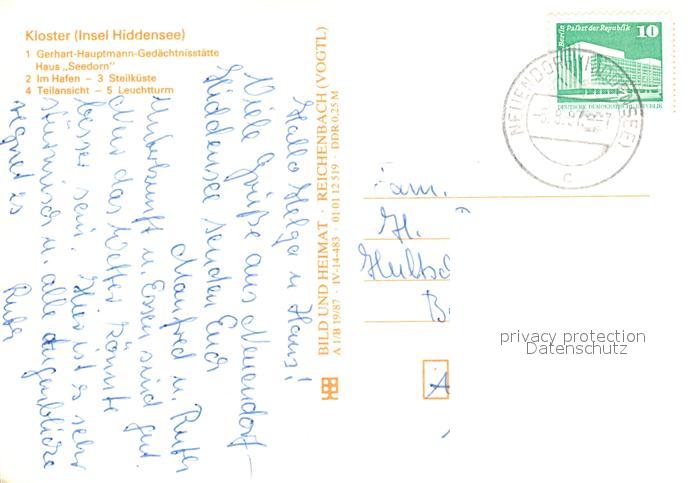 Kloster (Insel Hiddensee)
1 Gerhart-Hauptmann-Gedächtnisstätte
Haus „Seedorn"
2 Im Hafen – 3 Steilküste
4 Teilansicht – 5 Leuchtturm
Hallo Helga u Hans!
Viele Grüße aus Neuendorf-
Hiddensee senden Euch
Manfred u. Ruth
Unterkunft u. Essen sind gut
Nur das Wetter könnte
besser sein. Hier ist es sehr
stürmisch u. alle Augenblicke
regnet es
Ruth
BILD UND HEIMAT · REICHENBACH (VOGTL)
A 1/B 19/87 · IV-14-483 · 01 01 12 519 DDR 0,25 M
Berlin Palast der Republik 10
DEUTSCHE DEMOKRATISCHE REPUBLIK
NEUENDORF (HIDDENSEE)
c
Fam.
H.
privacy protection
Datenschutz